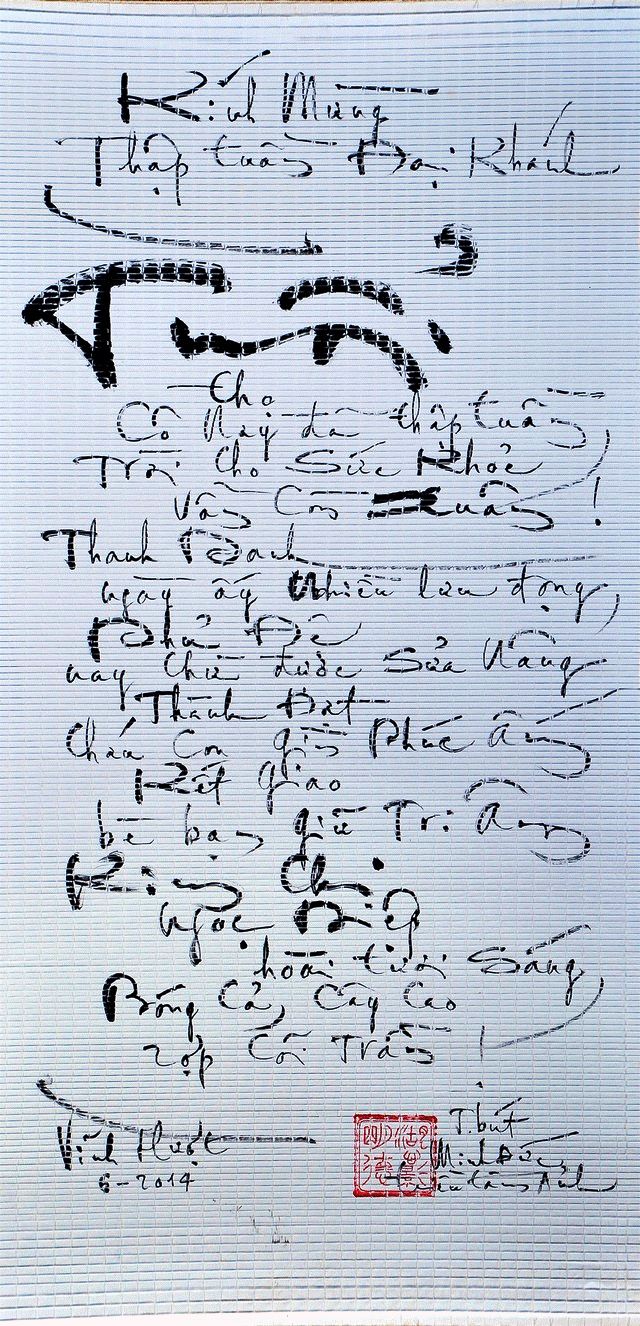 Kính Mừng
Thập tuần Đại Khánh
Thọ
Cô Nay đã thập tuần
Trời Cho Sức Khỏe
vẫn Còn Xuân!
Thanh Danh
ngày ấy Nhiều lưu động,
Phu Đệ
nay Chừ được Sửa Nâng
Thành Đạt
Cháu Con gìn Phúc Ấm
Kết giao
bè bạn giữ Tri Âm
Kính Chị
Ngọc Diệp
hoài tươi Sáng
Bóng Cả, Cây Cao
rợp Cõi Trần!
Vĩnh
6-2014
T.bút
Minh Đức
Triều Tâm Ảnh